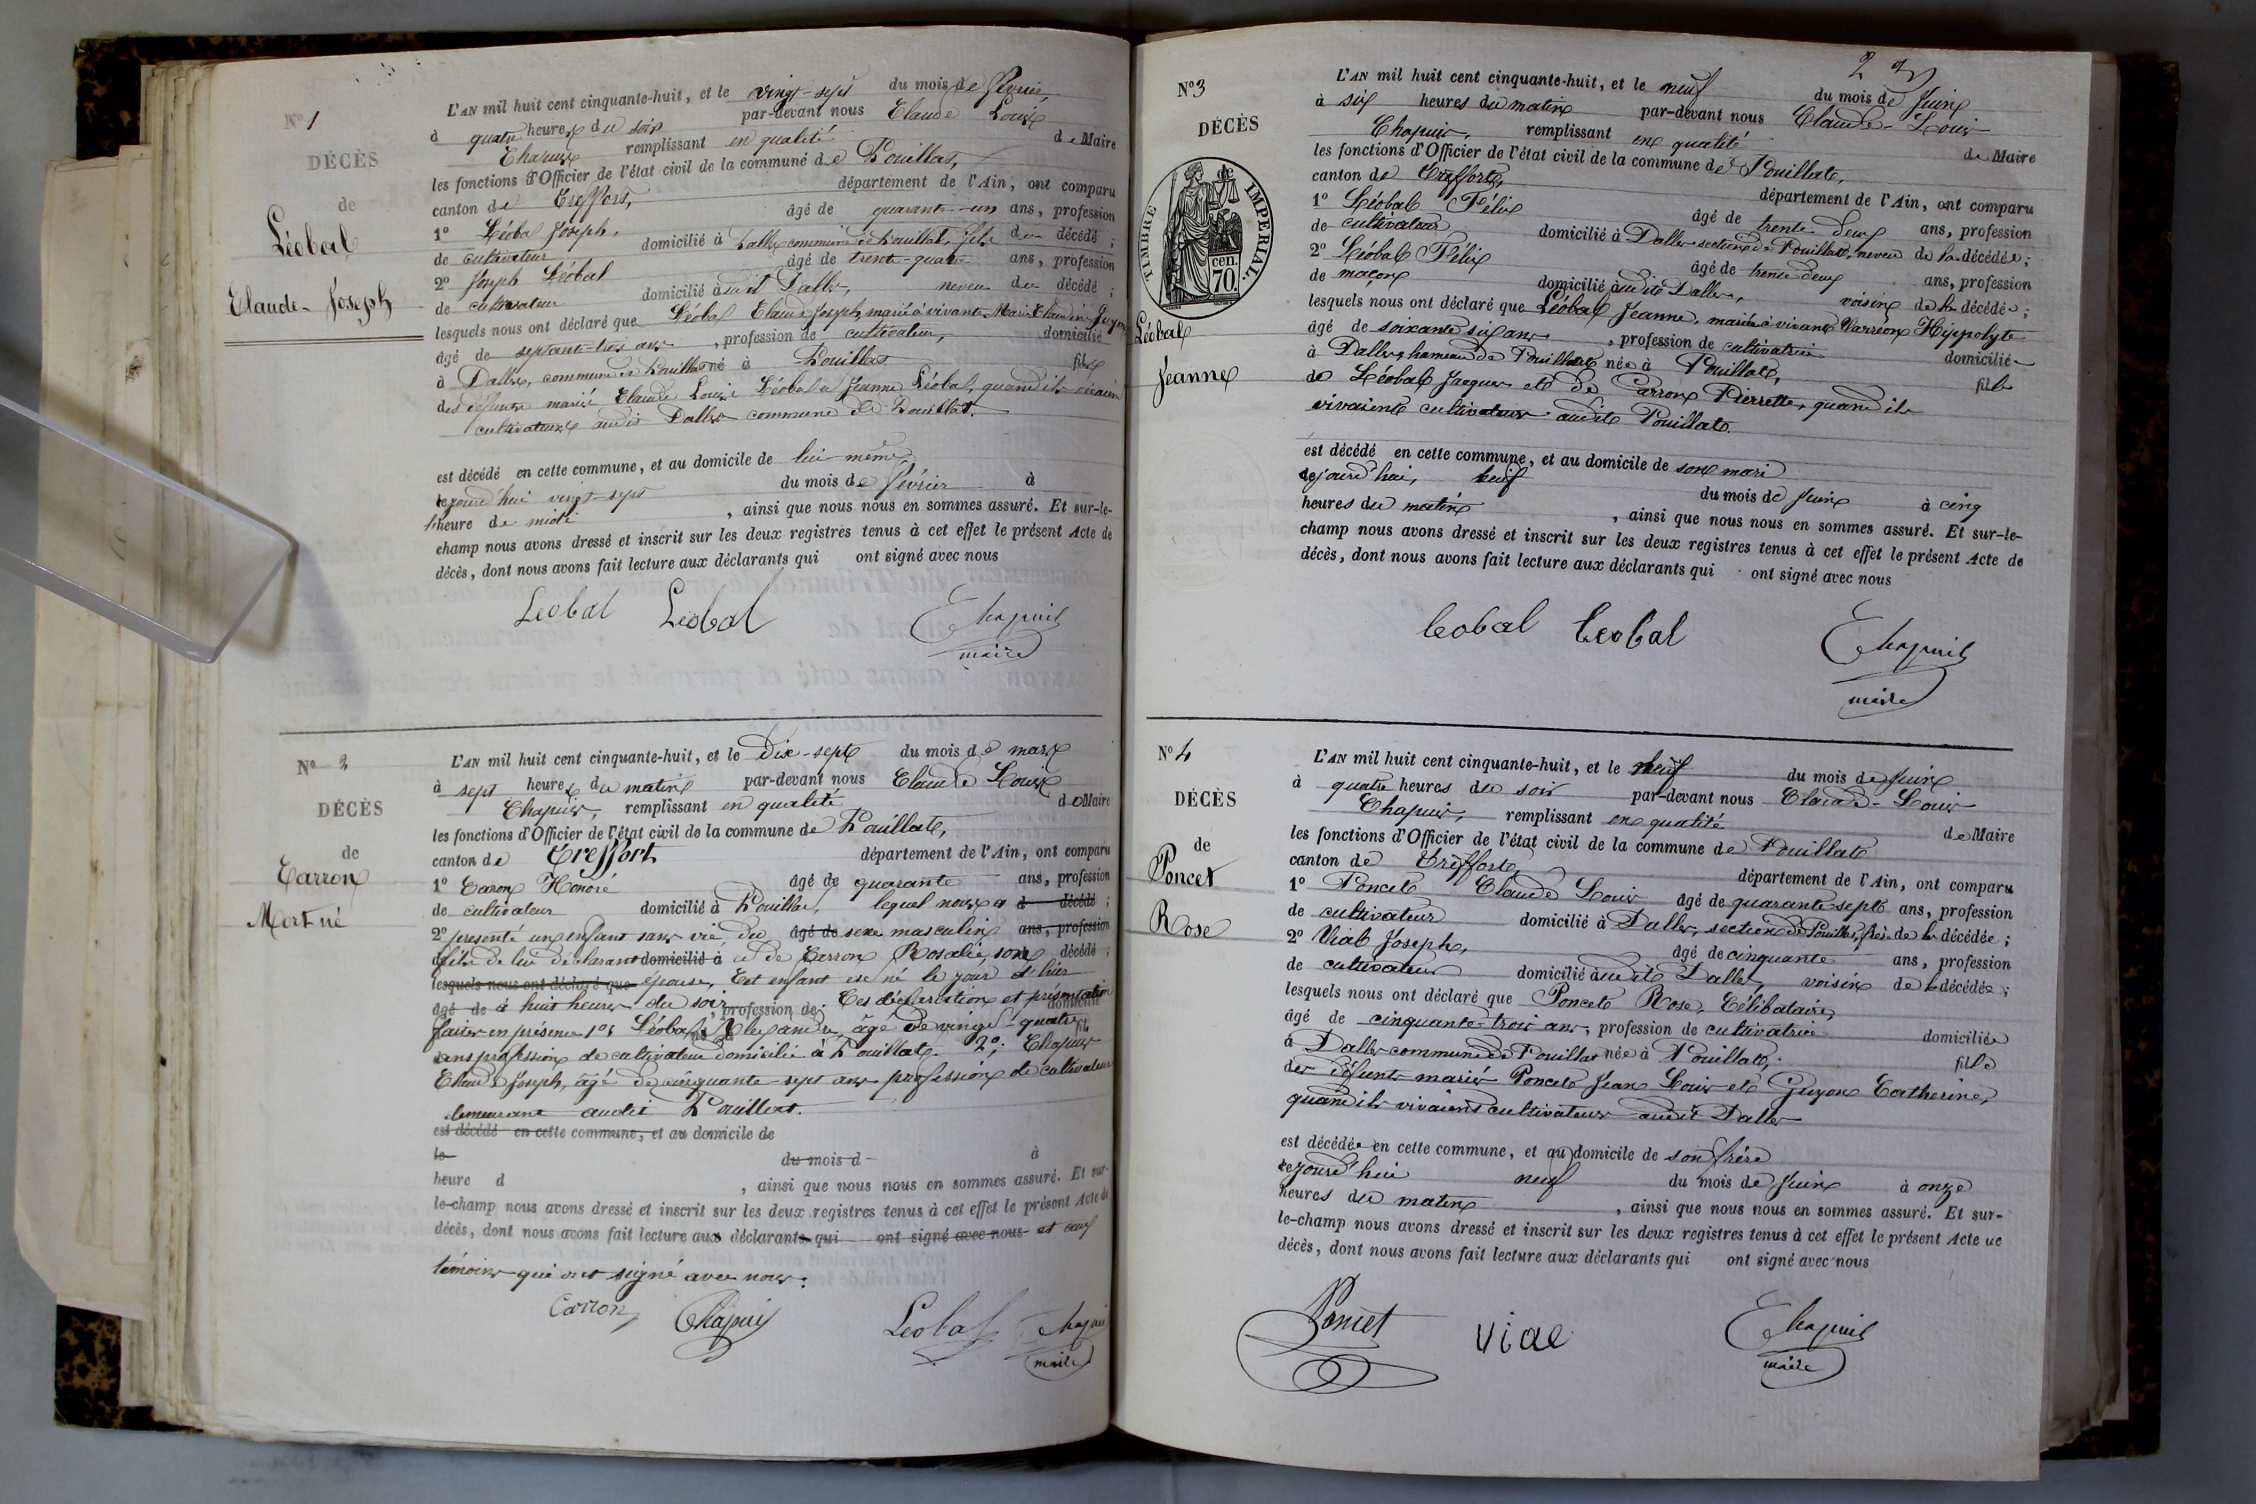 N° 1
DÉCÈS
de
Léobal
Claude-Joseph
L'AN mil huit cent cinquante-huit, et le vingt-sept du mois de février
à quatre heures du soir par-devant nous Claude Louis
Chapuis remplissant en qualité de Maire
les fonctions d'Officier de l'état civil de la commune de Pouillat,
canton de Treffort, département de l'Ain, ont comparu
1° Léobal Joseph, âgé de quarante-un ans, profession
de cultivateur domicilié à Dalles commune de Pouillat, fils du décédé ;
2° Joseph Léobal âgé de trente-quatre ans, profession
de cultivateur domicilié audit Dalles, neveu du décédé ;
lesquels nous ont déclaré que Léobal Claude Joseph, marié à vivante Marie Claudine Guyon
âgé de septante-trois ans, profession de cultivateur, domicilié
à Dalles, commune de Pouillat né à Pouillat fils
des défunts mariés Claude Louis Léobal et Jeanne Léobal, quand ils vivaient
cultivateurs audit Dalles commune de Pouillat.
est décédé en cette commune, et au domicile de lui-même,
cejourd'hui vingt-sept du mois de février à
heure de midi, ainsi que nous nous en sommes assuré. Et sur-le-
champ nous avons dressé et inscrit sur les deux registres tenus à cet effet le présent Acte de
décès, dont nous avons fait lecture aux déclarants qui ont signé avec nous
Leobal Leobal Chapuis
maire
N° 2
DÉCÈS
de
Carron
Mort né
L'AN mil huit cent cinquante-huit, et le Dix-sept du mois de mars
à sept heures du matin par-devant nous Claude Louis
Chapuis, remplissant en qualité de Maire
les fonctions d'Officier de l'état civil de la commune de Pouillat,
canton de Treffort département de l'Ain, ont comparu
1° Caron Honoré âgé de quarante ans, profession
de cultivateur domicilié à Pouillat, lequel nous a d décédé ;
2° présenté un enfant sans vie du âgé de sexe masculin ans, profession
fils de lui déclarant domicilié à et de Carron Rosalie, son décédé ;
lesquels nous ont déclaré que épouse, Cet enfant est né le jour d'hier
âgé de à huit heures du soir, profession de Ces déclaration et présentation domicilié
faites en présence 1° Léobal Alexandre, âgé de vingt-quatre fil
ans profession de cultivateur domicilié à Pouillat. 2°; Chapuis
Claude Joseph, âgé de cinquante-sept ans profession de cultivateur
demeurant audit Pouillat.
est décédé en cette commune, et au domicile de
le du mois d à
heure d, ainsi que nous nous en sommes assuré. Et sur-
le-champ nous avons dressé et inscrit sur les deux registres tenus à cet effet le présent Acte de
décès, dont nous avons fait lecture aux déclarants qui ont signé avec nous et aux
témoins qui ont signé avec nous.
Carron Chapuis Leobal Chapuis
maire
2
N° 3
DÉCÈS
de
TIMBRE IMPERIAL
cen.
70.
Léobal
Jeanne
L'AN mil huit cent cinquante-huit, et le neuf du mois de juin
à six heures du matin par-devant nous Claude-Louis
Chapuis, remplissant en qualité de Maire
les fonctions d'Officier de l'état civil de la commune de Pouillat,
canton de Treffort, département de l'Ain, ont comparu
1° Léobal Félix âgé de trente-deux ans, profession
de cultivateur domicilié à Dalles section de Pouillat, neveu de la décédée ;
2° Léobal Félix âgé de trente deux ans, profession
de maçon domicilié audit Dalles, voisin de la décédée ;
lesquels nous ont déclaré que Léobal Jeanne, mariée à vivant Varréon Hippolyte
âgé de soixante six ans, profession de cultivatrice domiciliée
à Dalles, hameau de Pouillat née à Pouillat, fille
de Léobal Jacques et de Carron Pierrette, quand ils
vivaient cultivateurs audit Pouillat.
est décédé en cette commune, et au domicile de son mari
cejourd'hui, neuf du mois de juin à cinq
heures du matin, ainsi que nous nous en sommes assuré. Et sur-le-
champ nous avons dressé et inscrit sur les deux registres tenus à cet effet le présent Acte de
décès, dont nous avons fait lecture aux déclarants qui ont signé avec nous
Leobal Leobal Chapuis
maire
N° 4
DÉCÈS
de
Poncet
Rose
L'AN mil huit cent cinquante-huit, et le neuf du mois de juin
à quatre heures du soir par-devant nous Claude-Louis
Chapuis, remplissant en qualité de Maire
les fonctions d'Officier de l'état civil de la commune de Pouillat
canton de Treffort, département de l'Ain, ont comparu
1° Poncet Claude Louis âgé de quarante sept ans, profession
de cultivateur domicilié à Dalles, section de Pouillat, frère de la décédée ;
2° Vial Joseph, âgé de cinquante ans, profession
de cultivateur domicilié audit Dalles, voisin de la décédée ;
lesquels nous ont déclaré que Poncet Rose, Célibataire,
âgé de cinquante-trois ans, profession de cultivatrice domiciliée
à Dalles commune de Pouillat née à Pouillat, fille
des défunts mariés Poncet Jean Louis et Guyon Catherine,
quand ils vivaient cultivateurs audit Dalles
est décédée en cette commune, et au domicile de son frère
cejourd'hui neuf du mois de juin à onze
heures du matin, ainsi que nous nous en sommes assuré. Et sur-
le-champ nous avons dressé et inscrit sur les deux registres tenus à cet effet le présent Acte de
décès, dont nous avons fait lecture aux déclarants qui ont signé avec nous
Poncet Vial Chapuis
maire